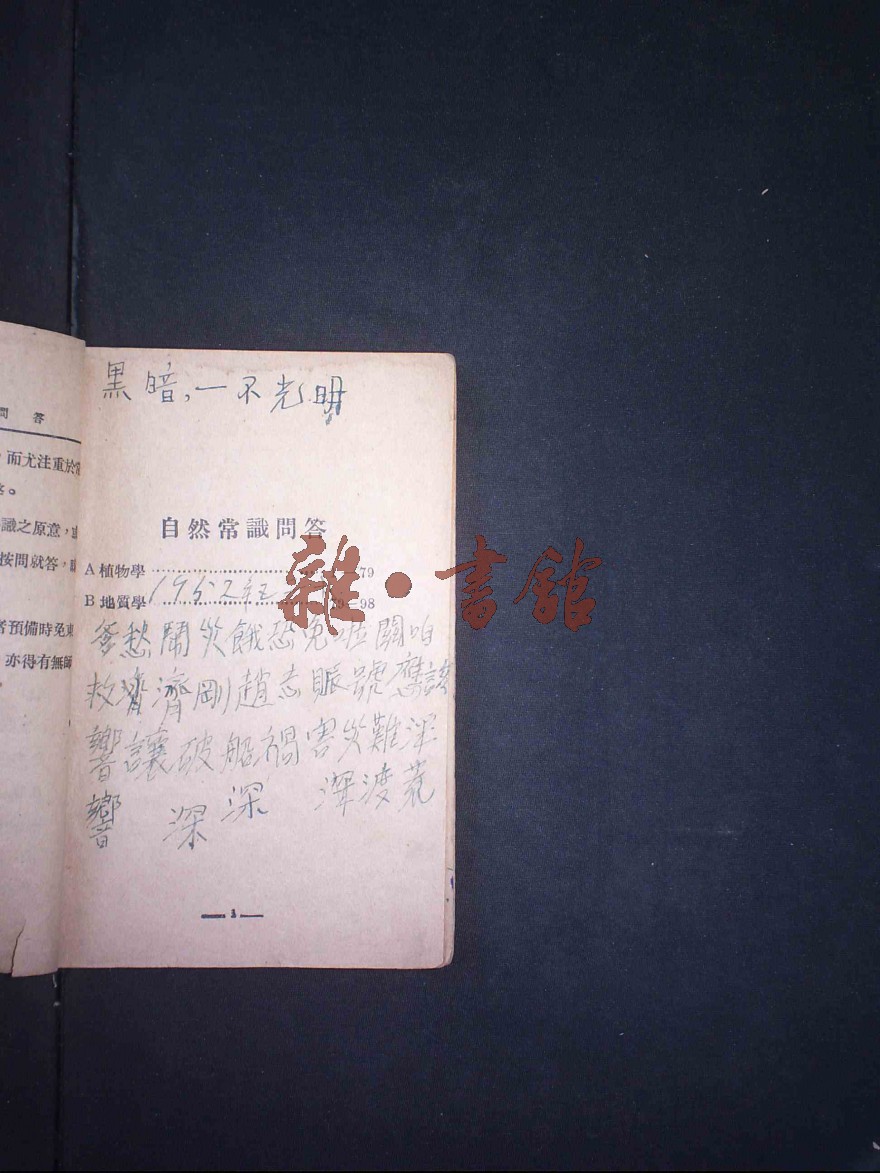 問 答
，而尤注重於常
識之原意，
按問就答，
者預備時免東
亦得有無師
黑暗，一不光明
自然常識問答
A 植物學 79
B 地質學 98
1952年
愁鬧災餓恐 關咱
救濟濟剛趙志賑號應該
響讓破船禍害災難深
響 深 深 深渡荒
雜·書館